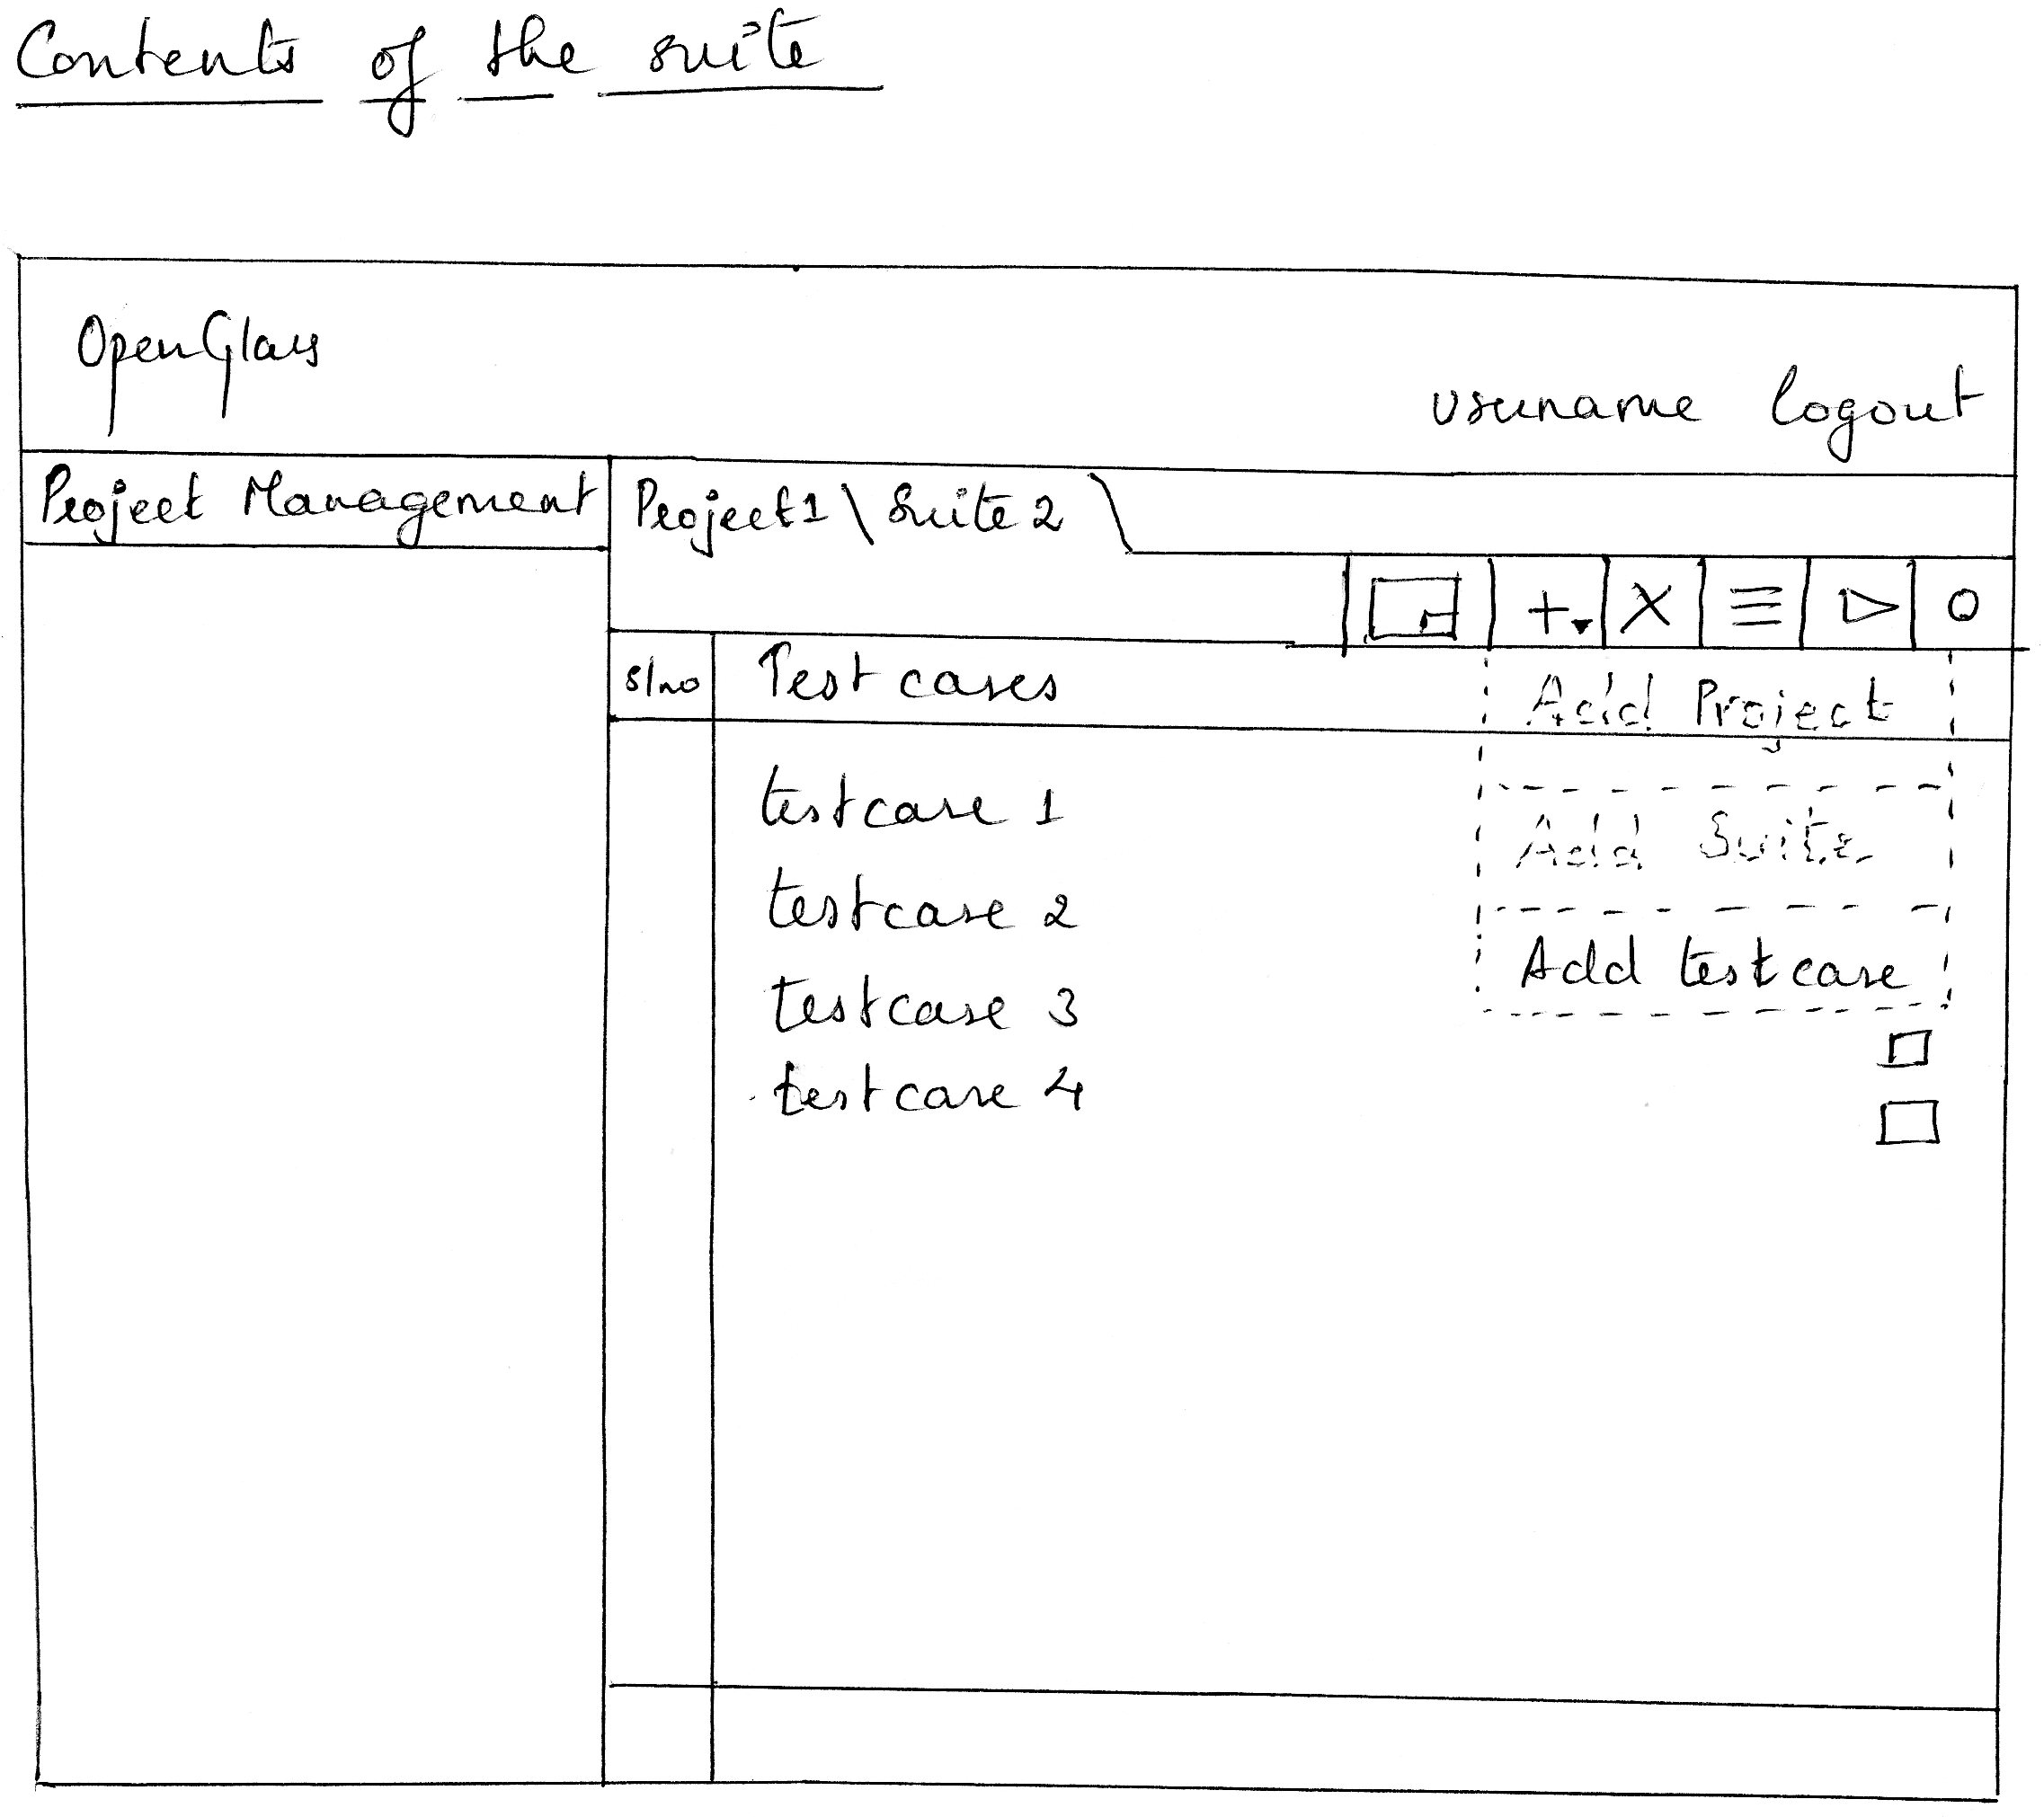 Contents of the suite
OpenGlass
username logout
Project Management
Project1 \ Suite 2
+ X
Sl no
Test cases
Add Project
testcase 1
Add Suite
testcase 2
Add testcase
testcase 3
testcase 4